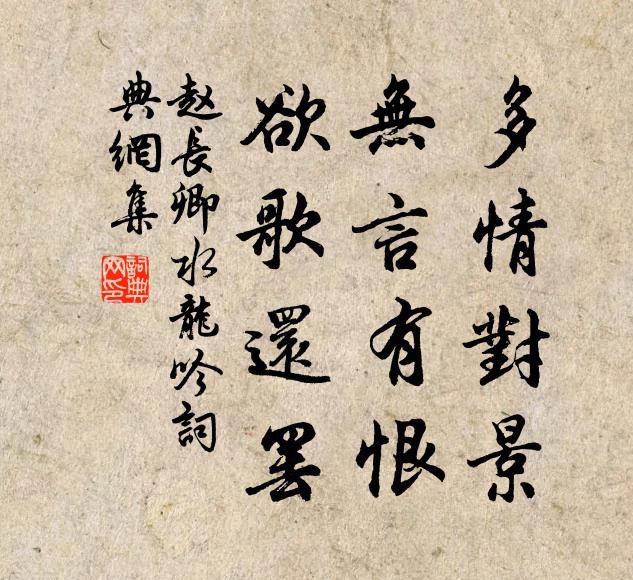 多情對景
無言有恨
欲歌還罷
赵長卿水龍吟詞
典網集
詞典网印